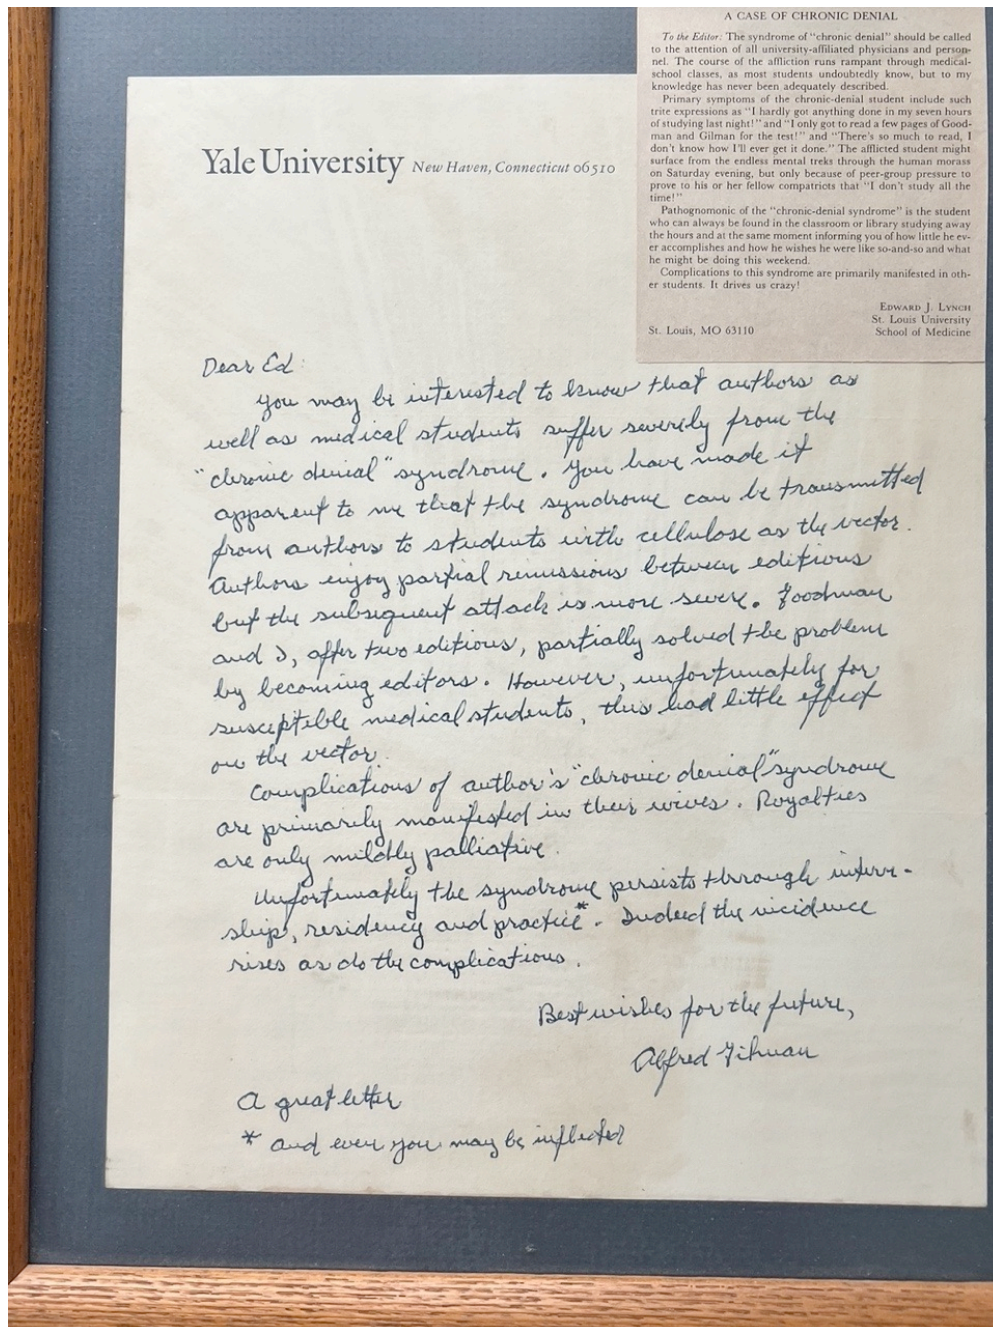 A CASE OF CHRONIC DENIAL
To the Editor: The syndrome of "chronic denial" should be called
to the attention of all university-affiliated physicians and person-
nel. The course of the affliction runs rampant through medical-
school classes, as most students undoubtedly know, but to my
knowledge has never been adequately described.
Primary symptoms of the chronic-denial student include such
trite expressions as "I hardly got anything done in my seven hours
of studying last night!" and "I only got to read a few pages of Good-
man and Gilman for the test!" and "There's so much to read, I
don't know how I'll ever get it done." The afflicted student might
surface from the endless mental treks through the human morass
on Saturday evening, but only because of peer-group pressure to
prove to his or her fellow compatricts that "I don't study all the
time!"
Pathognomonic of the "chronic-denial syndrome" is the student
who can always be found in the classroom or library studying away
the hours and at the same moment informing you of how little he ev-
er accomplishes and how he wishes he were like so-and-so and what
he might be doing this weekend.
Complications to this syndrome are primarily manifested in oth-
er students. It drives us crazy!
EDWARD J. LYNCH
St. Louis University
St. Louis, MO 63110 School of Medicine
Yale University New Haven, Connecticut 06510
Dear Ed
You may be interested to know that authors as
well as medical students suffer severely from the
"chronic denial" syndrome. You have made it
apparent to me that the syndrome can be transmitted
from authors to students with cellulose as the vector.
Authors enjoy partial remissions between editions
but the subsequent attack is more severe. Goodman
and I, after two editions, partially solved the problem
by becoming editors. However, unfortunately for
susceptible medical students, this had little effect
on the vector.
Complications of author's "chronic denial" syndrome
are primarily manifested in their wives. Royalties
are only mildly palliative.
Unfortunately the syndrome persists through intern-
ship, residency and practice*. Indeed the incidence
rises as do the complications.
Best wishes for the future,
Alfred Gilman
A great letter
* and even you may be inflicted